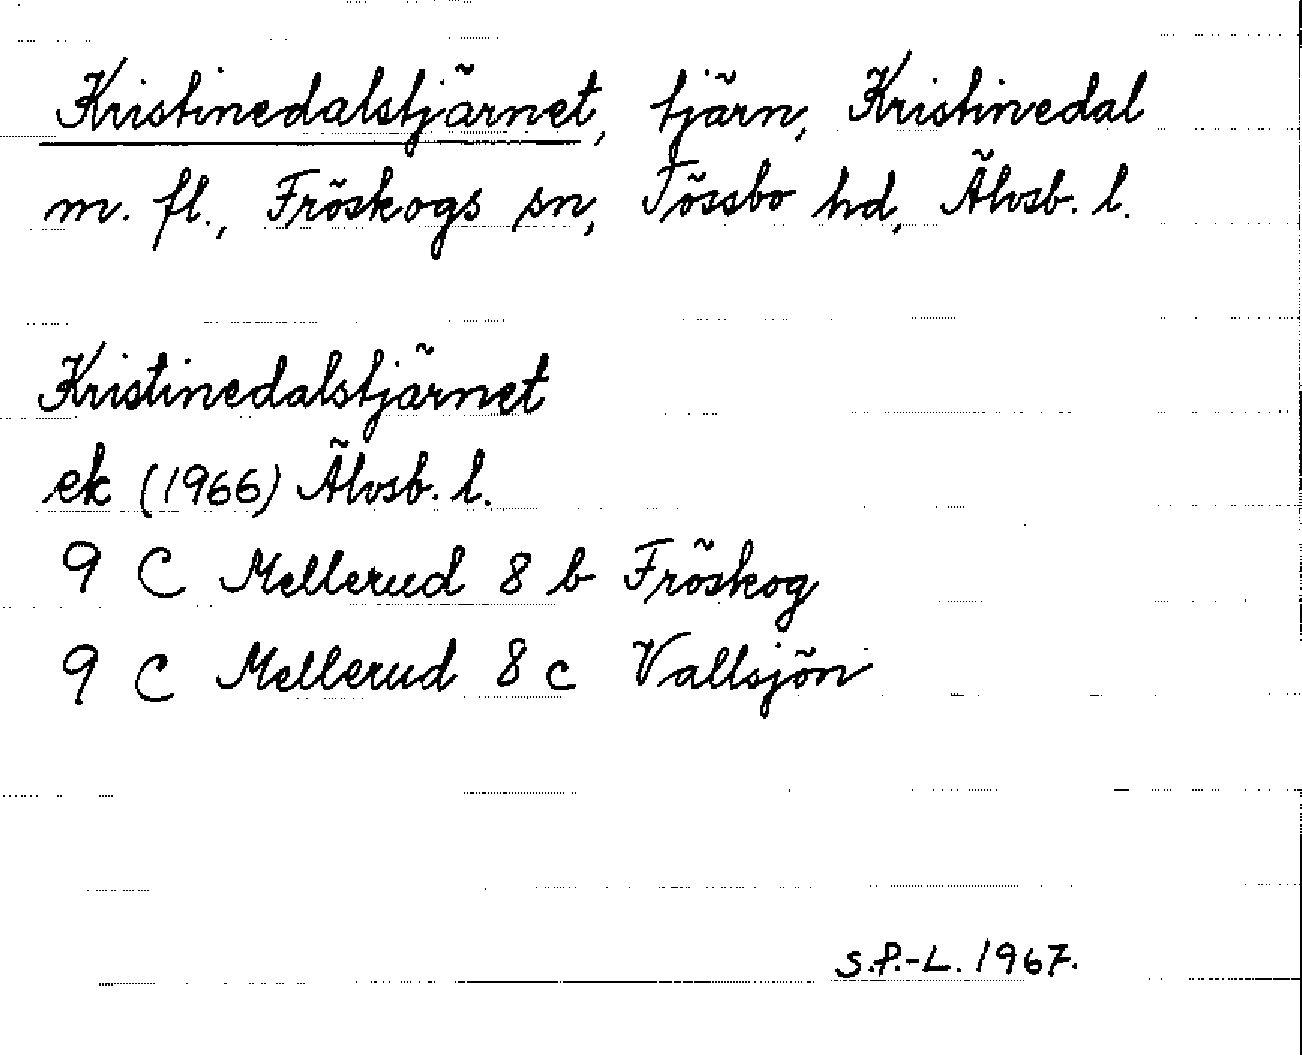 Kristinedalstjärnet, tjärn, Kristinedal
m. fl., Fröskogs sn, Tössbo hd, Älvsb. l.
Kristinedalstjärnet
ek (1966) Älvsb. l.
9 C Mellerud 8 b Fröskog
9 C Mellerud 8 c Vallsjön
S.P.-L. 1967.